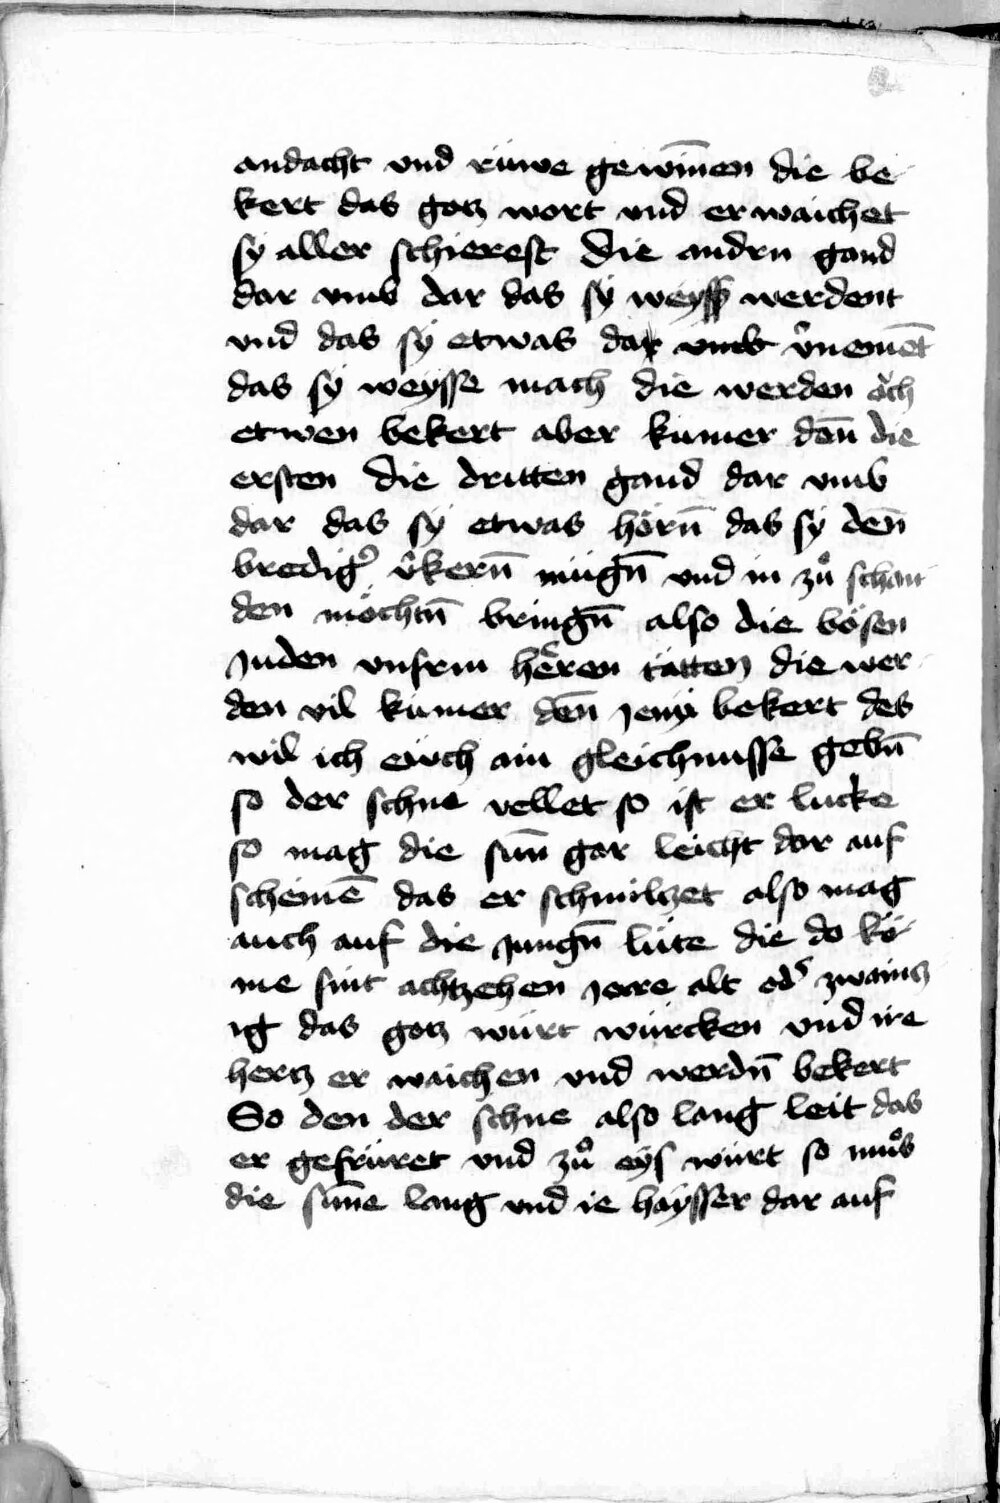 andacht vnd rüwe gewin̄en die be
kert das gotz wort vnd er waichet
sÿ aller schierest Die andrn gand
dar vmb dar das sÿ weÿß werdent
vnd das sÿ etwas dar vmb v̂nemēt
das sÿ weÿsse mach die werden öch
etwen bekert aber kumer den̄ die
ersten Die dritten gand dar vmb
dar das sÿ etwas hörn̄ das sÿ den̄
bredigᵉ v̂kern̄ mügn̄ vnd in zů schan
den möchtn̄ bringn̄ also die bösen
Juden vnfrm heren tätten die wer
den vil kumer den̄ Jenÿ bekert des
wil ich eüch ain gleichnusse gebn̄
so der schne vellet so ist er lucke
so mag die sun̄ gar leicht dar auf
scheinē das er schmiltzet also mag
auch auf die Jungn̄ lüte die do kö
me sint achtzehen Jare alt odᵉ zwaintz
ig das gotz würt würcken vnd ire
hertz er waichen vnd werdn̄ bekert
So den der schne also lang leit das
er gefrüret vnd zů eÿs würt so můs
die sun̄e lang vnd ie haÿsser dar auf